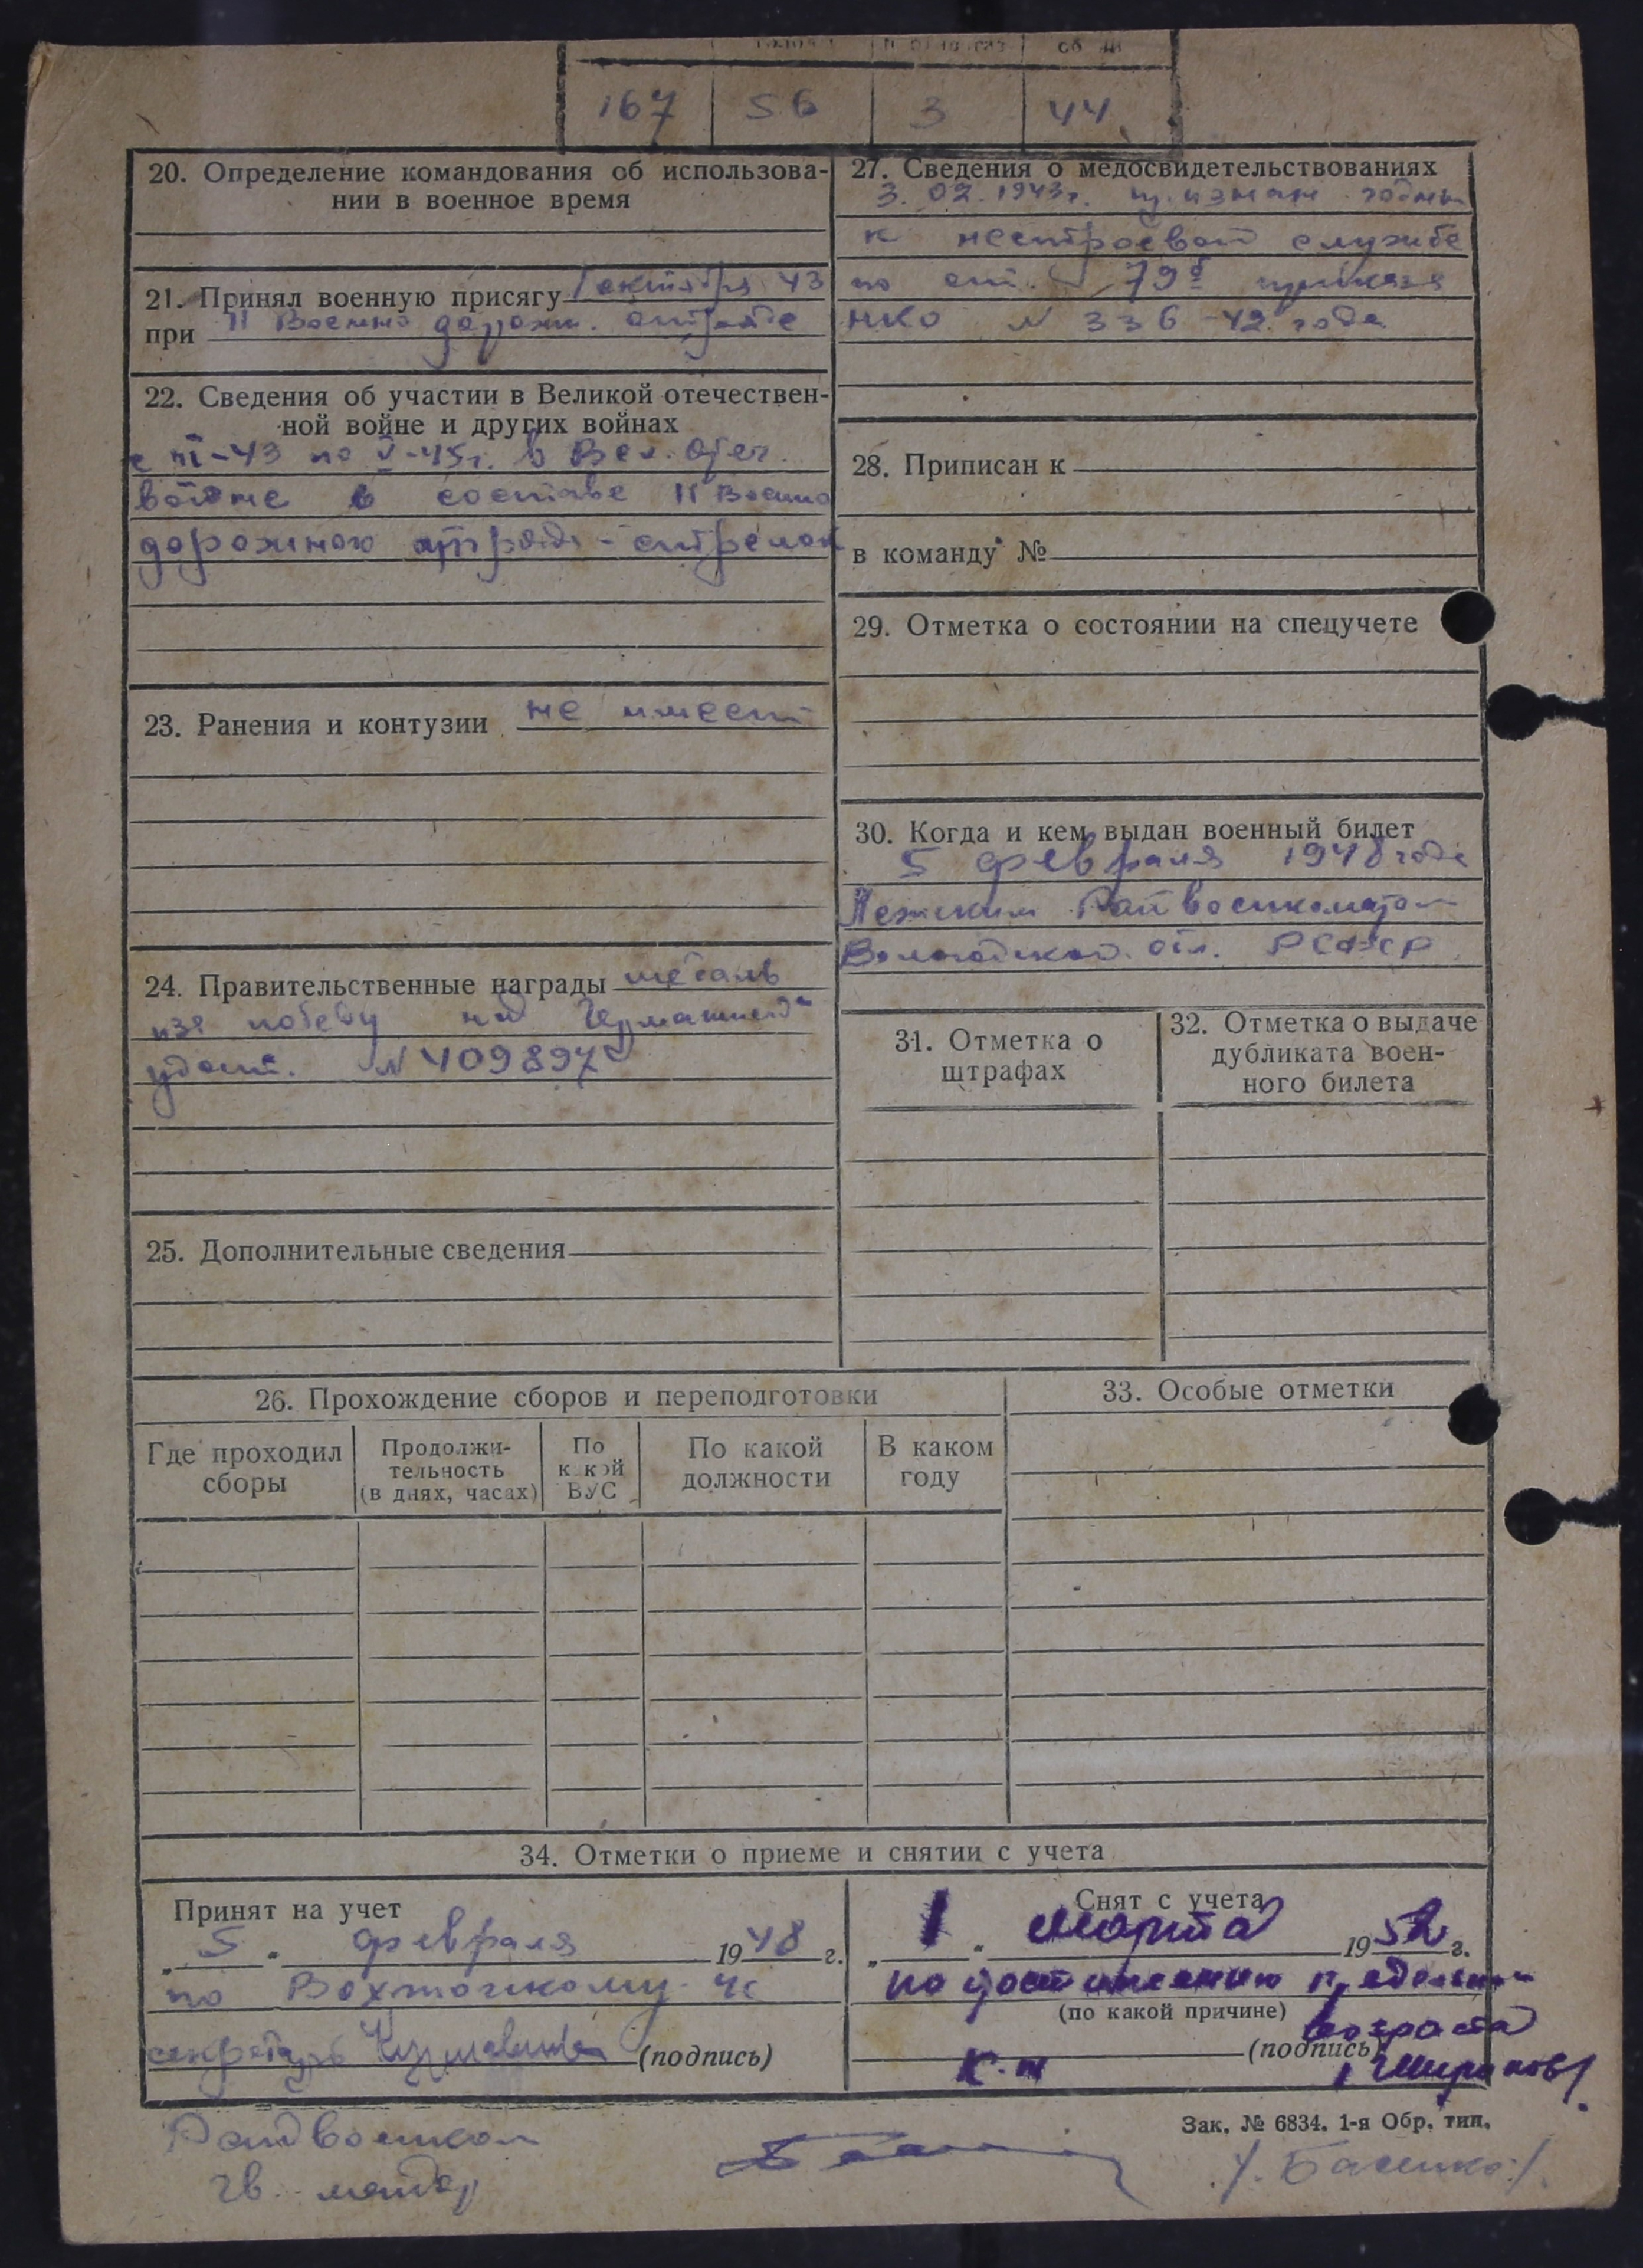 167 56 3 44
20. Определение командования об использова-
нии в военное время
21. Принял военную присягу октября 43
при 11 Военно дорожн. отряде
22. Сведения об участии в Великой отечествен-
ной войне и других войнах
с III-43 по V-45г. в Вел. Отеч.
войне в составе 11 Военно
дорожного отряда - стрелок
23. Ранения и контузии не имеет
24. Правительственные награды медаль
"За победу над Германией"
удост. N 409897
25. Дополнительные сведения
26. Прохождение сборов и переподготовки
Где проходил сборы
Продолжи-
тельность
(в днях, часах)
По
какой
ВУС
По какой
должности
В каком
году
27. Сведения о медосвидетельствованиях
3. 02. 1943г. признан годным
к нестроевой службе
по ст. 79б приказа
НКО N 336 - 42 года
28. Приписан к
в команду №
29. Отметка о состоянии на спецучете
30. Когда и кем выдан военный билет
5 февраля 1948 года
Лежским Райвоенкоматом
Вологодской обл. РСФСР.
31. Отметка о
штрафах
32. Отметка о выдаче
дубликата воен-
ного билета
33. Особые отметки
34. Отметки о приеме и снятии с учета
Принят на учет
„5" февраля 1948 г.
по Вохтожскому ЧС
секретарь (подпись)
Снят с учета
„1" марта 1952 г.
по достижению предельного
(по какой причине)
возраста
(подпись)
Райвоенком
гв. майор
Зак. № 6834. 1-я Обр. тип.